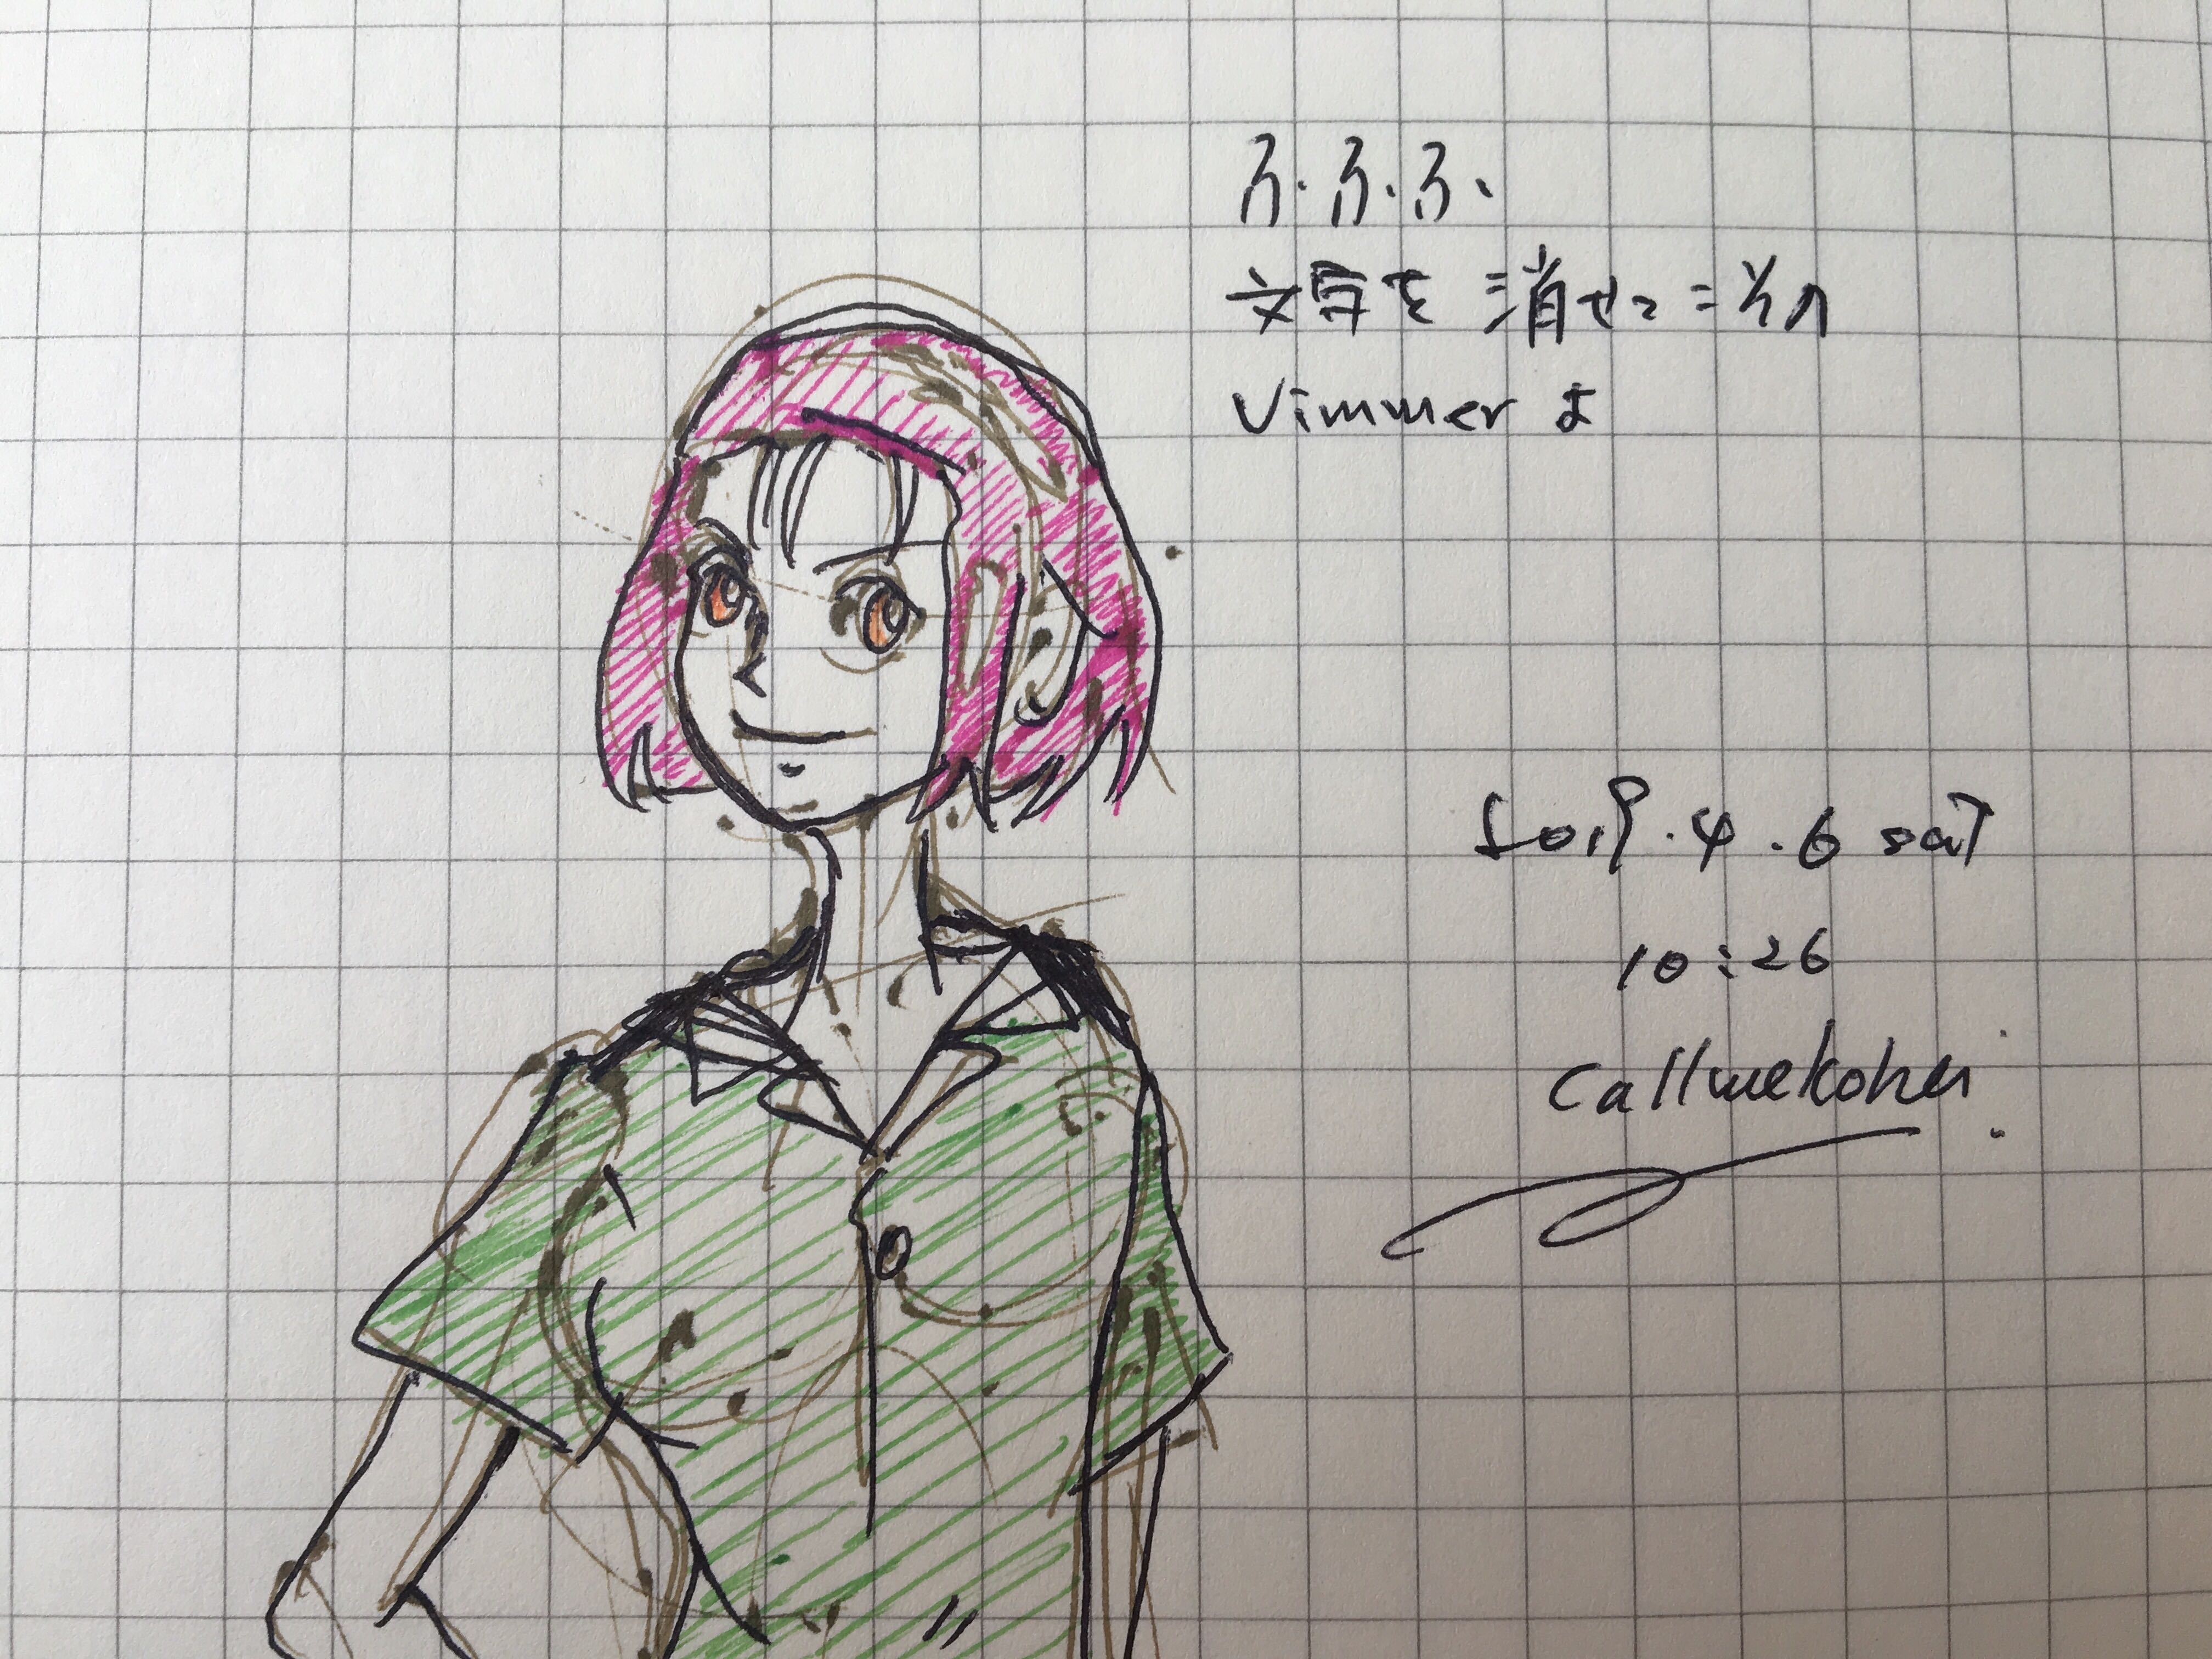 ふ.ふ.ふ.
文字を消せ
Vimmer よ
2019.4.6 sat
10:26
Callmekohei